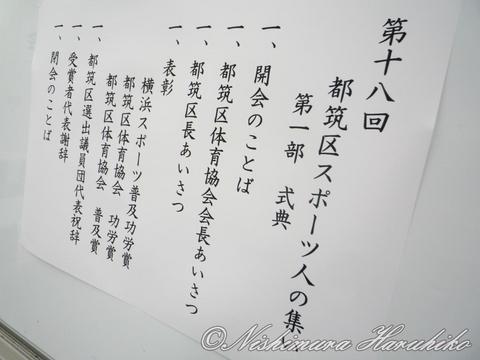 第十八回
都筑区スポーツ人の集い
第一部　式典
一、開会のことば
一、都筑区体育協会会長あいさつ
一、都筑区長あいさつ
一、表彰
横浜スポーツ普及功労賞
都筑区体育協会　功労賞
都筑区体育協会　普及賞
一、都筑区選出議員団代表祝辞
一、受賞者代表謝辞
一、閉会のことば
©Nishimura Haruhiko